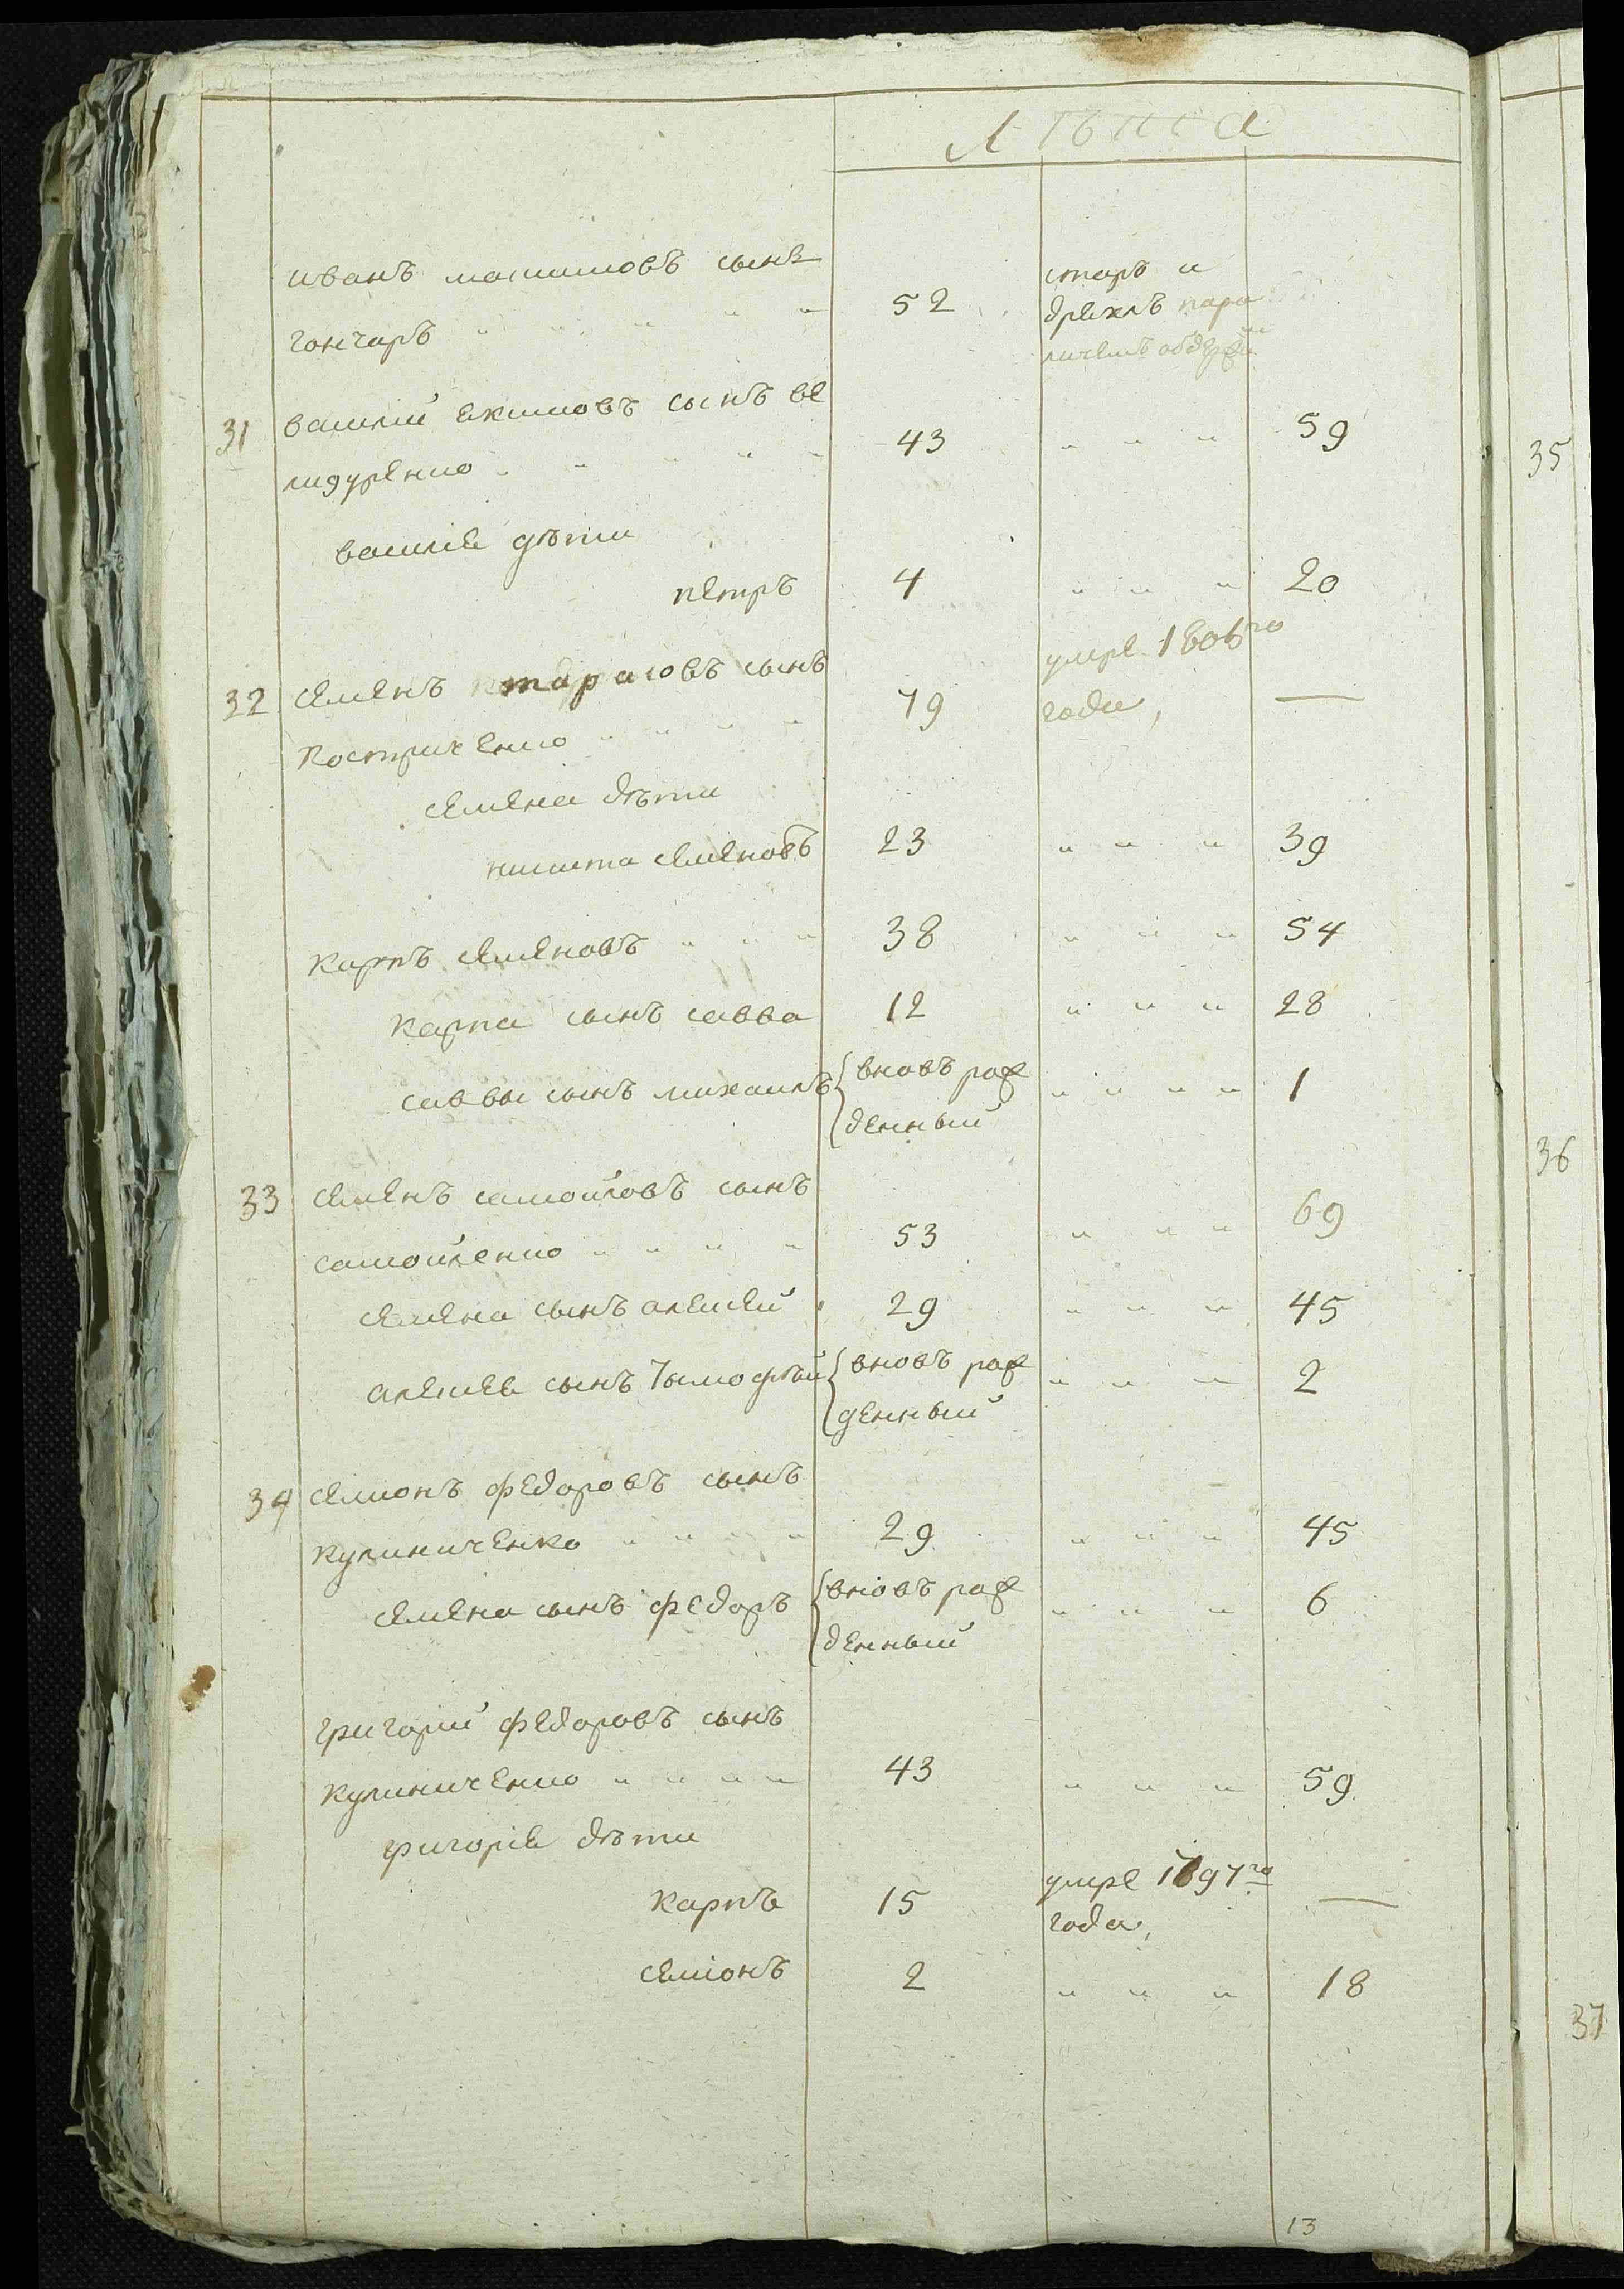 Лѣта
иванъ максимовъ сынъ
гончаръ " " " " " 52 старъ и
дряхлъ пара
личемъ обдержим
31 василий екимовъ сынъ ве
лидуренко " " " " " 43 " " " 59
василіе дѣти
петръ 4 " " " 20
32 семенъ тарасовъ сынъ
костриченко " " " " 79 умре 1806го
года, —
семена дѣти
никита семеновъ 23 " " " 39
карпъ семеновъ " " " 38 " " " 54
карпа сынъ савва 12 " " " 28
саввы сынъ михаилъ вновь рож
денный " " " " 1
33 семенъ самойловъ сынъ
самойленко " " " " 53 " " " 69
семена сынъ алексей 29 " " " 45
алексея сынъ Тимофѣй вновь рож
денный " " " 2
34 семіонъ федоровъ сынъ
кулиниченко " " " " 29 " " " 45
семена сынъ федоръ вновь рож
денный " " " 6
григорий федоровъ сынъ
кулиниченко " " " " 43 " " " 59
григоріе дѣти
карпъ 15 умре 1797го
года, —
семіонъ 2 " " " 18
13
35
36
37